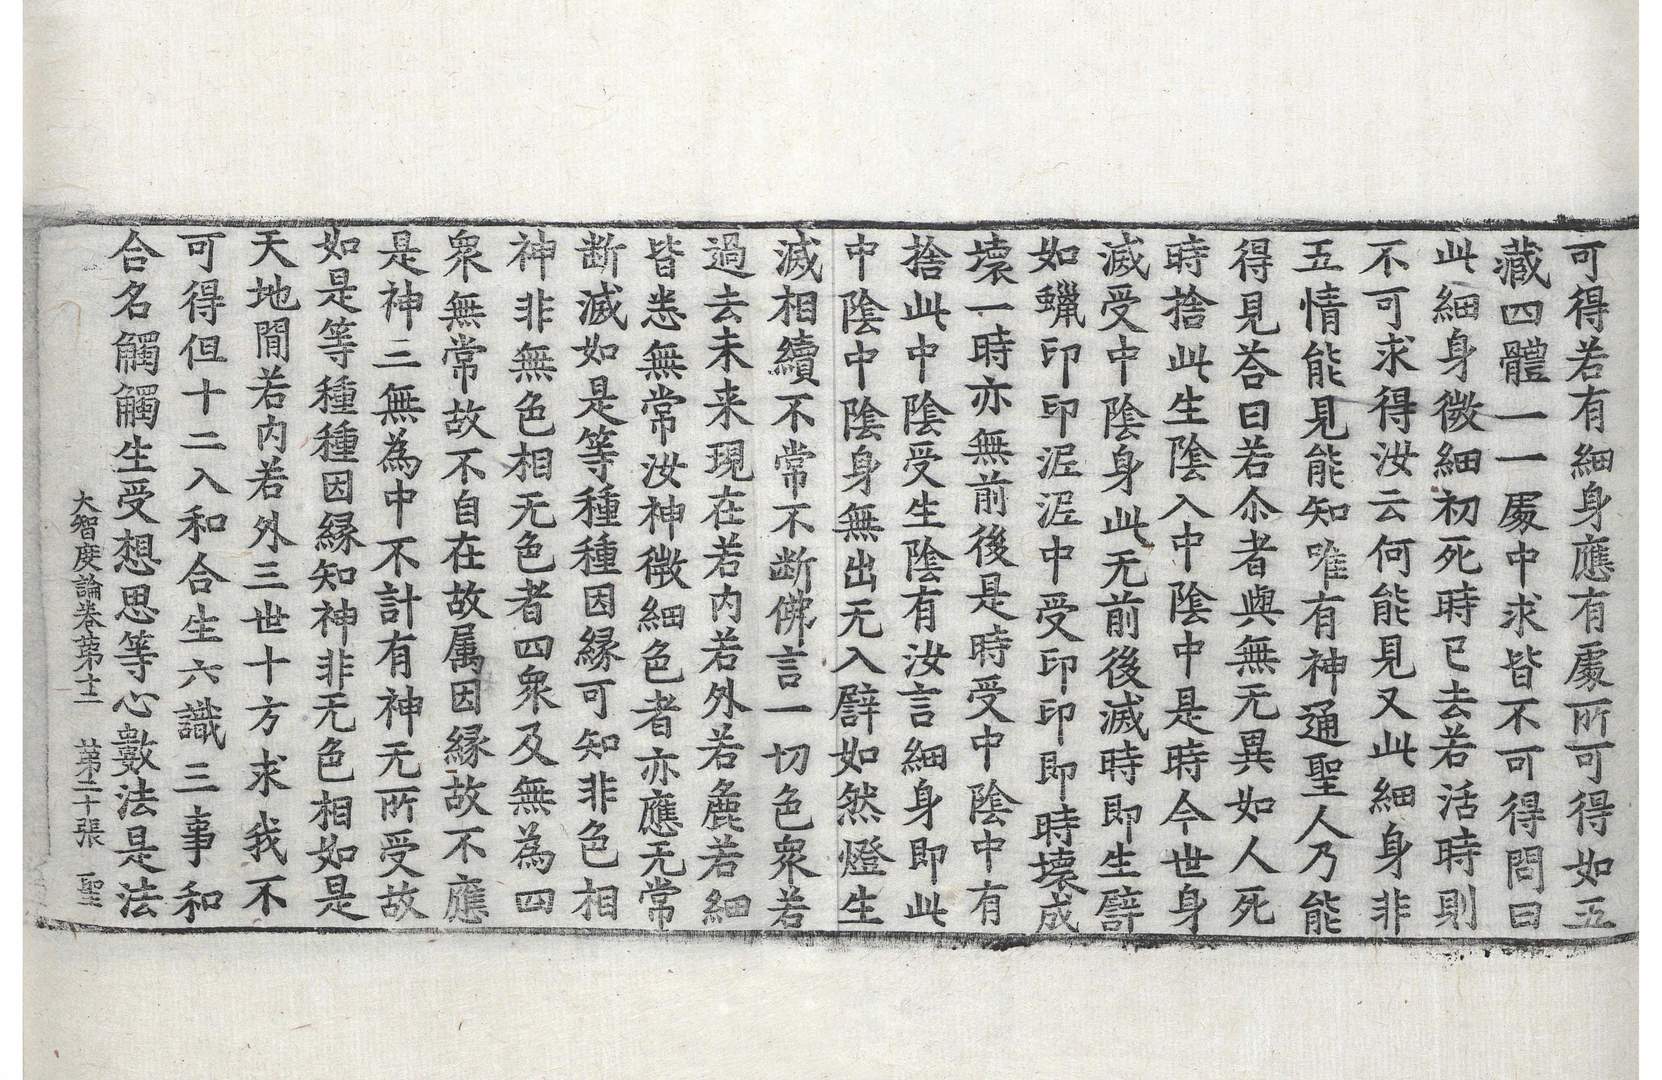 可得若有細身應有處所可得如五
藏四體一一處中求皆不可得問曰
此細身微細初死時已去若活時則
不可求得汝云何能見又此細身非
五情能見能知唯有神通聖人乃能
得見荅曰若尒者與無无異如人死
時捨此生陰入中陰中是時今世身
滅受中陰身此无前後滅時即生譬
如蠟印印泥泥中受印印即時壞成
壞一時亦無前後是時受中陰中有
捨此中陰受生陰有汝言細身即此
中陰中陰身無出无入譬如然燈生
滅相續不常不断佛言一切色衆若
過去未来現在若內若外若麁若細
皆悉無常汝神微細色者亦應无常
断滅如是等種種因縁可知非色相
神非無色相无色者四衆及無為四
衆無常故不自在故属因縁故不應
是神三無為中不計有神无所受故
如是等種種因縁知神非无色相如是
天地閒若內若外三世十方求我不
可得但十二入和合生六識三事和
合名觸觸生受想思等心數法是法
大智度論卷第十二 第二十張 聖